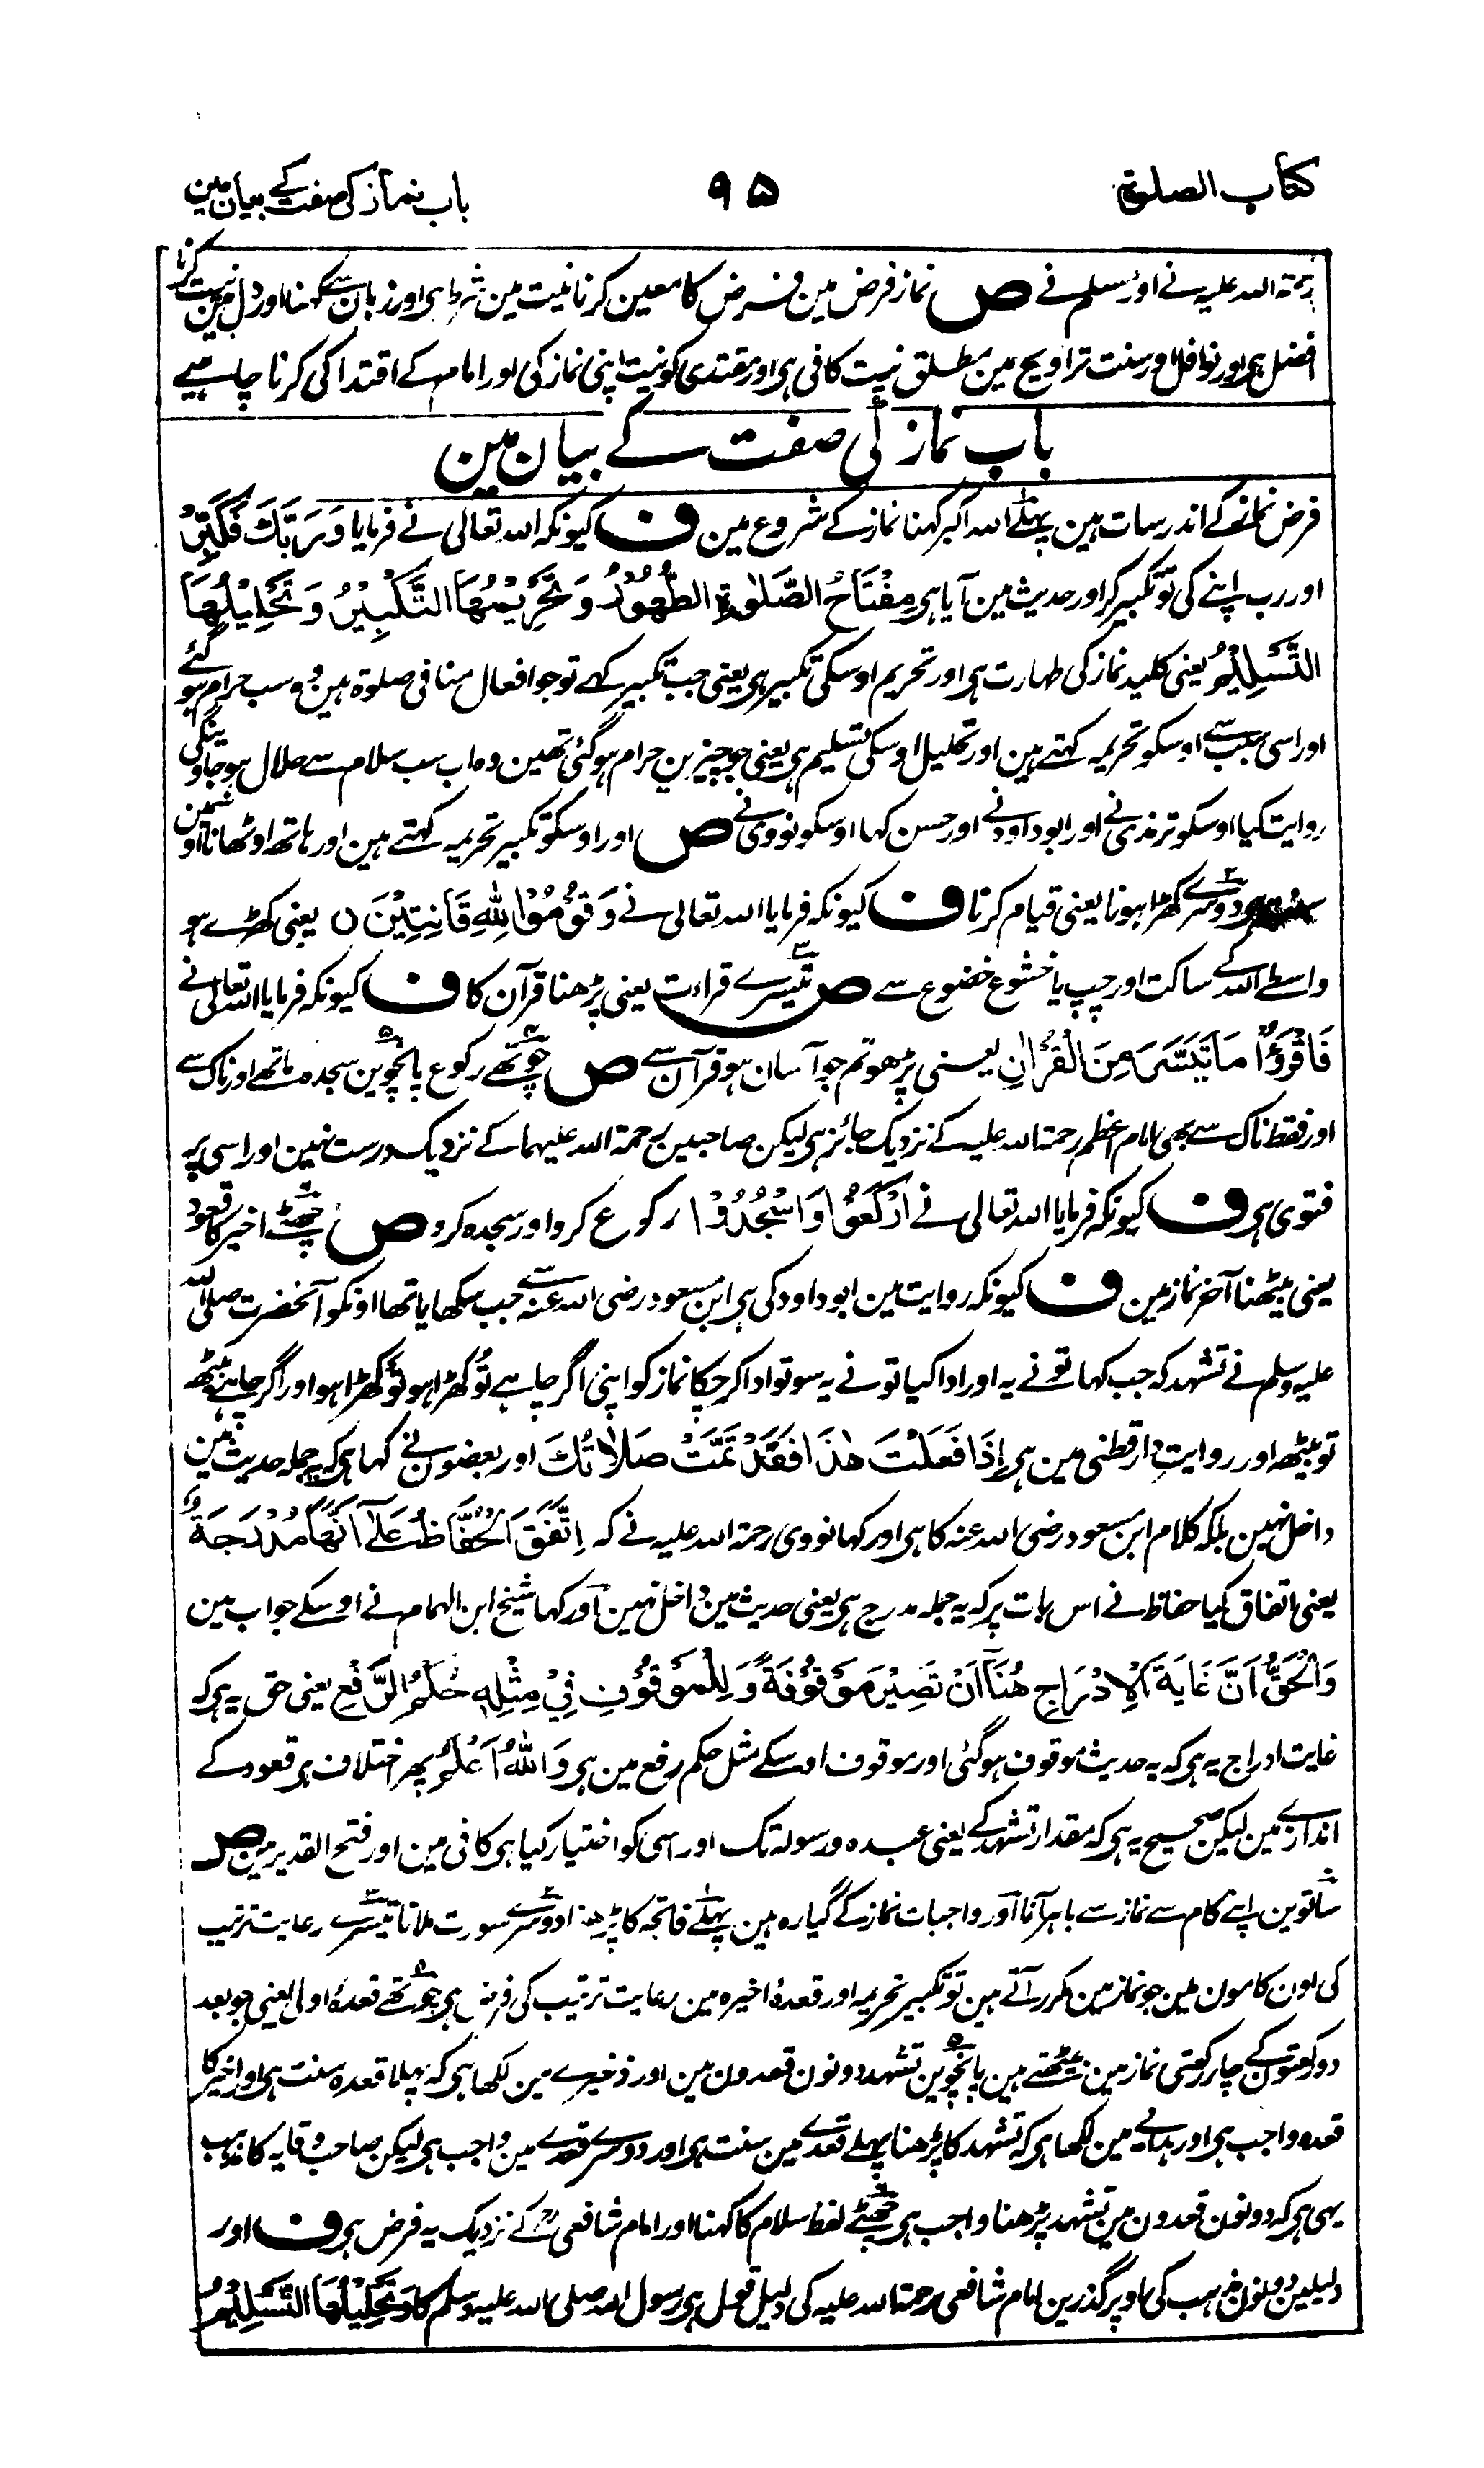 کتاب الصلوۃ
۹۵
باب نماز کی صفت کے بیان مین
رحمۃ اللہ علیہ نے اور مسلم نے ص نماز فرض مین فرض کا معین کرنا نیت مین شرط ہی اور زبان سے کہنا اور دل مین نیت کرنا
افضل ہی اور نوافل اور سنت تراویح مین مطلق نیت کافی ہی اور مقتدی کو نیت اپنی نماز کی اور امام کے اقتدا کی کرنا چاہیے
باب نماز کی صفت کے بیان مین
فرض نماز کے اندر سات ہین پہلے اللہ اکبر کہنا نماز کے شروع مین ف کیونکہ اللہ تعالی نے فرمایا وَرَبَّكَ فَكَبِّرْ
اور رب اپنے کی تو تکبیر کر اور حدیث مین آیا ہی مِفْتَاحُ الصَّلٰوةِ الطُّهُوْرُ وَتَحْرِيْمُهَا التَّكْبِيْرُ وَتَحْلِيْلُهَا
التَّسْلِيْمُ یعنی کلید نماز کی طہارت ہی اور تحریم اوسکی تکبیر ہی یعنی جب تکبیر کہے تو جو افعال منافی صلوۃ ہین وہ سب حرام ہو گئے
اور اسی سبب سے اوسکو تحریمہ کہتے ہین اور تحلیل اوسکی تسلیم ہی یعنی جو چیزین حرام ہو گئی تھین وہ اب سب سلام سے حلال ہو جاوینگی
روایت کیا اوسکو ترمذی نے اور ابو داود نے اور حسن کہا اوسکو نووی نے ص اور اوسکو تکبیر تحریمہ کہتے ہین اور ہاتھ اوٹھانا اوسمین
دوسرے کھڑا ہونا یعنی قیام کرنا ف کیونکہ فرمایا اللہ تعالی نے وَقُوْمُوْا لِلّٰهِ قَانِتِيْنَ ۝ یعنی کھڑے ہو
واسطے اللہ کے ساکت اور چپ یا خشوع خضوع سے ص تیسرے قراءت یعنی پڑھنا قرآن کا ف کیونکہ فرمایا اللہ تعالی نے
فَاقْرَؤُا مَا تَيَسَّرَ مِنَ الْقُرْاٰنِ یعنی پڑھو تم جو آسان ہو قرآن سے ص چوتھے رکوع پانچوین سجدہ ماتھے اور ناک سے
اور فقط ناک سے بھی امام اعظم رحمۃ اللہ علیہ کے نزدیک جائز ہی لیکن صاحبین رحمۃ اللہ علیہما کے نزدیک درست نہین اور اسی پر
فتوی ہی ف کیونکہ فرمایا اللہ تعالی نے ارْكَعُوْا وَاسْجُدُوْا رکوع کرو اور سجدہ کرو ص چھٹے اخیر کا قعود
یعنی بیٹھنا آخر نماز مین ف کیونکہ روایت مین ابو داود کی ہی ابن مسعود رضی اللہ عنہ سے جب سکھایا تھا اونکو آنحضرت صلی اللہ
علیہ وسلم نے تشہد کہ جب کہا تو نے یہ اور ادا کیا تو نے یہ سو تو ادا کر چکا نماز کو اپنی اگر چاہے تو کھڑا ہو تو کھڑا ہو اور اگر چاہے بیٹھ
تو بیٹھ اور روایت دارقطنی مین ہی اِذَا فَعَلْتَ هٰذَا فَقَدْ تَمَّتْ صَلَاتُكَ اور بعضون نے کہا ہی کہ یہ جملہ حدیث مین
داخل نہین بلکہ کلام ابن مسعود رضی اللہ عنہ کا ہی اور کہا نووی رحمۃ اللہ علیہ نے کہ اِتَّفَقَ الْحُفَّاظُ عَلٰٓى اَنَّهَا مُدْرَجَةٌ
یعنی اتفاق کیا حفاظ نے اس بات پر کہ یہ جملہ مدرج ہی یعنی حدیث مین داخل نہین اور کہا شیخ ابن الہمام نے اوسکے جواب مین
وَالْحَقُّ اَنَّ غَايَةَ الْاِدْرَاجِ هُنَا اَنْ تَصِيْرَ مَوْقُوْفَةً وَلِلْمَوْقُوْفِ فِيْ مِثْلِهٖ حُكْمُ الرَّفْعِ یعنی حق یہ ہی کہ
غایت ادراج یہ ہی کہ یہ حدیث موقوف ہو گئی اور موقوف اوسکے مثل حکم رفع مین ہی وَاللّٰهُ اَعْلَمُ پھر اختلاف ہی قعود کے
اندازے مین لیکن صحیح یہ ہی کہ مقدار تشہد کے یعنی عبدہ و رسولہ تک اور اسی کو اختیار کیا ہی کافی مین اور فتح القدیر مین ص
ساتوین اپنے کام سے نماز سے باہر آنا اور واجبات نماز کے گیارہ ہین پہلے فاتحہ کا پڑھنا دوسرے سورت ملانا تیسرے رعایت ترتیب
کی اون کامون مین جو نماز مین مکرر آتے ہین تو تکبیر تحریمہ اور قعدۂ اخیرہ مین رعایت ترتیب کی فرض ہی چوتھے قعدۂ اولی یعنی جو بعد
دو رکعتون کے چار رکعتی نماز مین بیٹھتے ہین پانچوین تشہد دونون قعدون مین اور ذخیرے مین لکھا ہی کہ پہلا قعدہ سنت ہی اور اخیر کا
قعدہ واجب ہی اور ہدایے مین لکھا ہی کہ تشہد کا پڑھنا پہلے قعدے مین سنت ہی اور دوسرے قعدے مین واجب ہی لیکن صاحب وقایہ کا مذہب
یہی ہی کہ دونون قعدون مین تشہد پڑھنا واجب ہی چھٹے لفظ سلام کا کہنا اور امام شافعی رح کے نزدیک یہ فرض ہی ف اور
دلیلین دونون مذہب کی اوپر گذرین امام شافعی رحمۃ اللہ علیہ کی دلیل قول ہی رسول اللہ صلی اللہ علیہ وسلم کا وَتَحْلِيْلُهَا التَّسْلِيْمُ